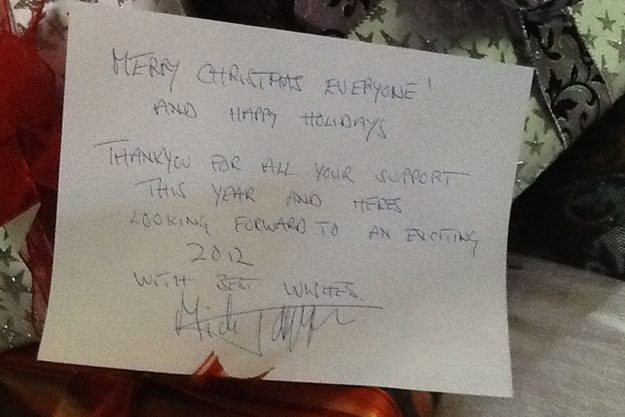 MERRY CHRISTMAS EVERYONE!
AND HAPPY HOLIDAYS
THANKYOU FOR ALL YOUR SUPPORT
THIS YEAR AND HERES
LOOKING FORWARD TO AN EXCITING
2012
WITH BEST WISHES.
Mick